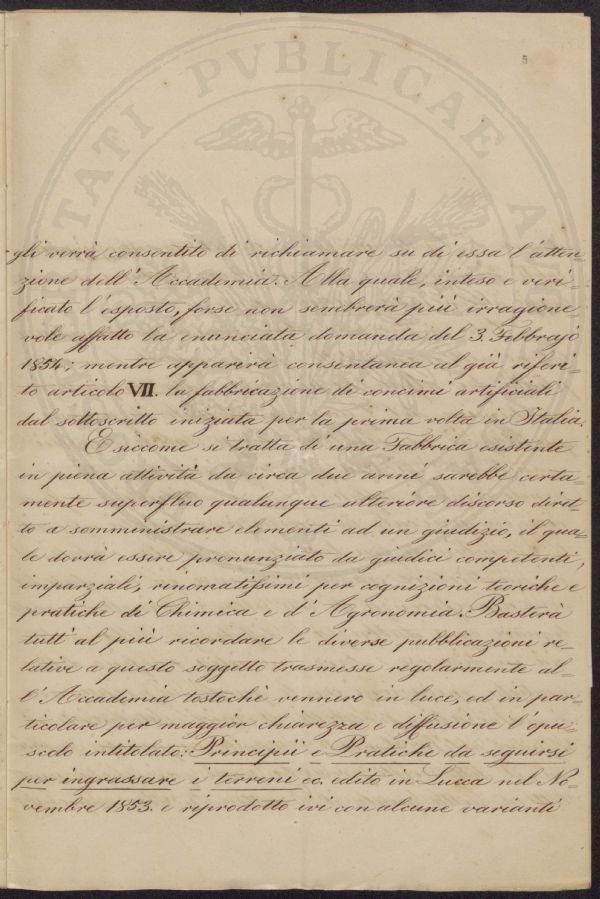 TATI PVBLICAE A
5
gli verrà consentito di richiamare su di essa l'atten=
zione dell'Accademia. Alla quale, inteso e veri=
ficato l'esposto, forse non sembrerà più irragione=
vole affatto la enunciata domanda del 3. Febbrajo
1854; mentre apparirà consentanea al già riferi=
to articolo VII. la fabbricazione di concimi artificiali
dal sottoscritto iniziata per la prima volta in Italia.
E siccome si tratta di una Fabbrica esistente
in piena attività da circa due anni sarebbe certa=
mente superfluo qualunque alteriore discorso diret=
to a somministrare elementi ad un giudizio, il qua=
le dovrà essere pronunziato da giudici competenti,
imparziali, rinomatissimi per cognizioni teoriche e
pratiche di Chimica e d'Agronomia. Basterà
tutt'al più ricordare le diverse pubblicazioni re=
lative a questo soggetto trasmesse regolarmente al=
l'Accademia tostochè vennero in luce, ed in par=
ticolare per maggior chiarezza e diffusione l'opu=
scolo intitolato: Principii e Pratiche da seguirsi
per ingrassare i terreni ec. edito in Lucca nel No=
vembre 1853. e riprodotto ivi con alcune varianti